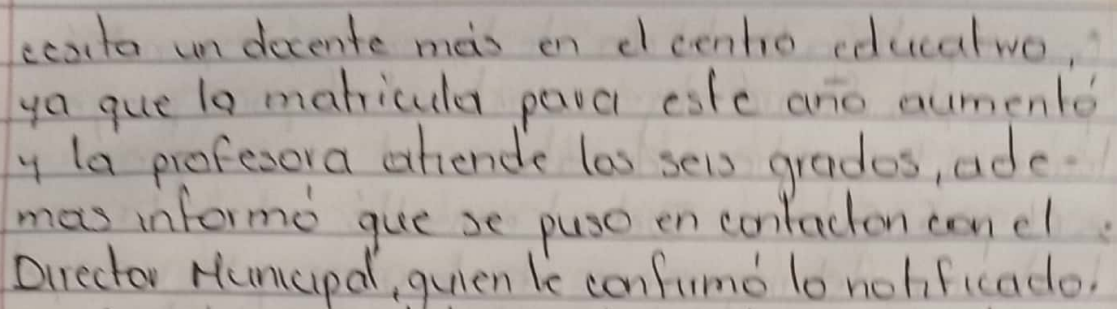 cesita un docente más en el centro educativo,
ya que la matricula para este año aumentó
y la profesora atiende los seis grados, ade-
mas informó que se puso en contacton con el
Director Municipal, quien le confirmó lo notificado.